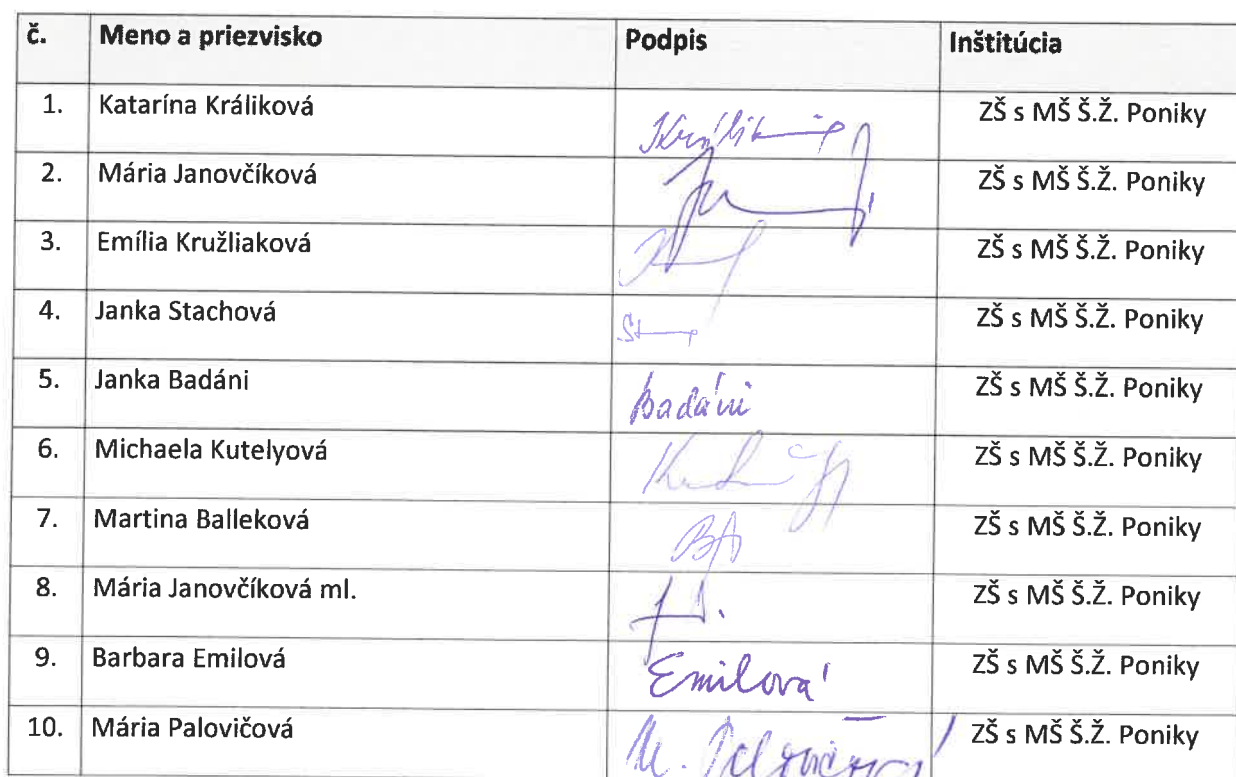 č. Meno a priezvisko Podpis Inštitúcia
1. Katarína Králiková ZŠ s MŠ Š.Ž. Poniky
2. Mária Janovčíková ZŠ s MŠ Š.Ž. Poniky
3. Emília Kružliaková ZŠ s MŠ Š.Ž. Poniky
4. Janka Stachová ZŠ s MŠ Š.Ž. Poniky
5. Janka Badáni Badáni ZŠ s MŠ Š.Ž. Poniky
6. Michaela Kutelyová ZŠ s MŠ Š.Ž. Poniky
7. Martina Balleková ZŠ s MŠ Š.Ž. Poniky
8. Mária Janovčíková ml. ZŠ s MŠ Š.Ž. Poniky
9. Barbara Emilová Emilová ZŠ s MŠ Š.Ž. Poniky
10. Mária Palovičová M. Palovičová ZŠ s MŠ Š.Ž. Poniky